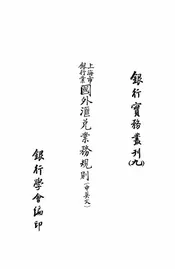 銀行實務叢刊(九)
上海市銀行業國外滙兌業務規則(中英文)
銀行學會編印